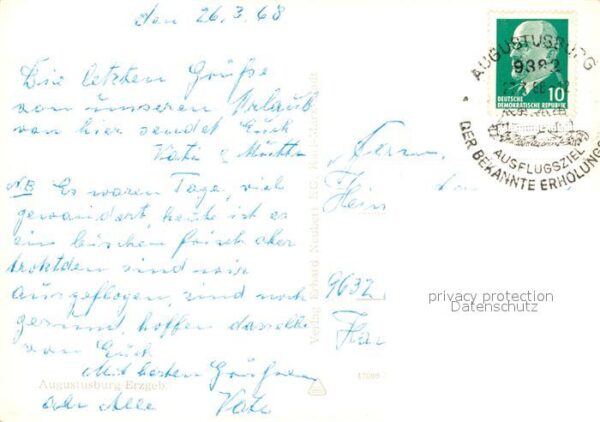 den 26.3.68
Die letzten Grüße
von unseren Urlaub
von hier sendet Euch
Vati & Mutti
NB Es waren Tage, viel
gewandert, heute ist es
ein bischen frisch aber
trotzden sind wir
ausgeflogen, sind noch
gesund, hoffen dasselbe
von Euch
Mit besten Grüßen
an Alle Vati
Augustusburg-Erzgeb.
Verlag Erhard Neubert KG,
Fam.
Hein
9632
AUGUSTUSBURG
9382
AUSFLUGSZIEL
DER BEKANNTE ERHOLUNGS
10
DEUTSCHE
DEMOKRATISCHE REPUBLIK
privacy protection
Datenschutz